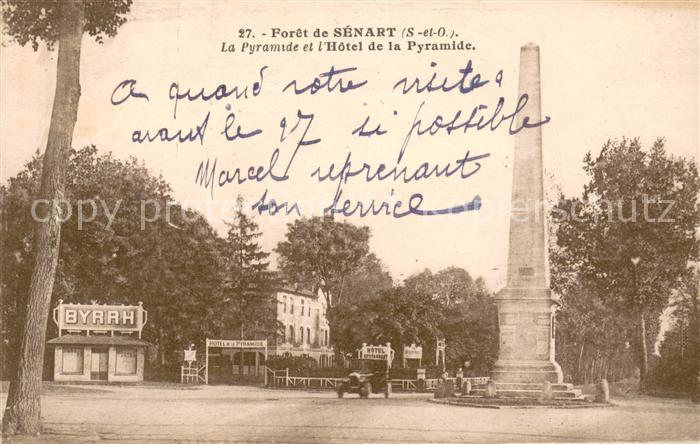 27. - Forêt de SÉNART (S.-et-O.).
La Pyramide et l'Hôtel de la Pyramide.
A quand votre visite
avant le 27 si possible
Marcel reprenant
son service
copyright Postkartenschutz
BYRRH
HOTEL DE LA PYRAMIDE
HÔTEL
RESTAURANT
HÔTEL